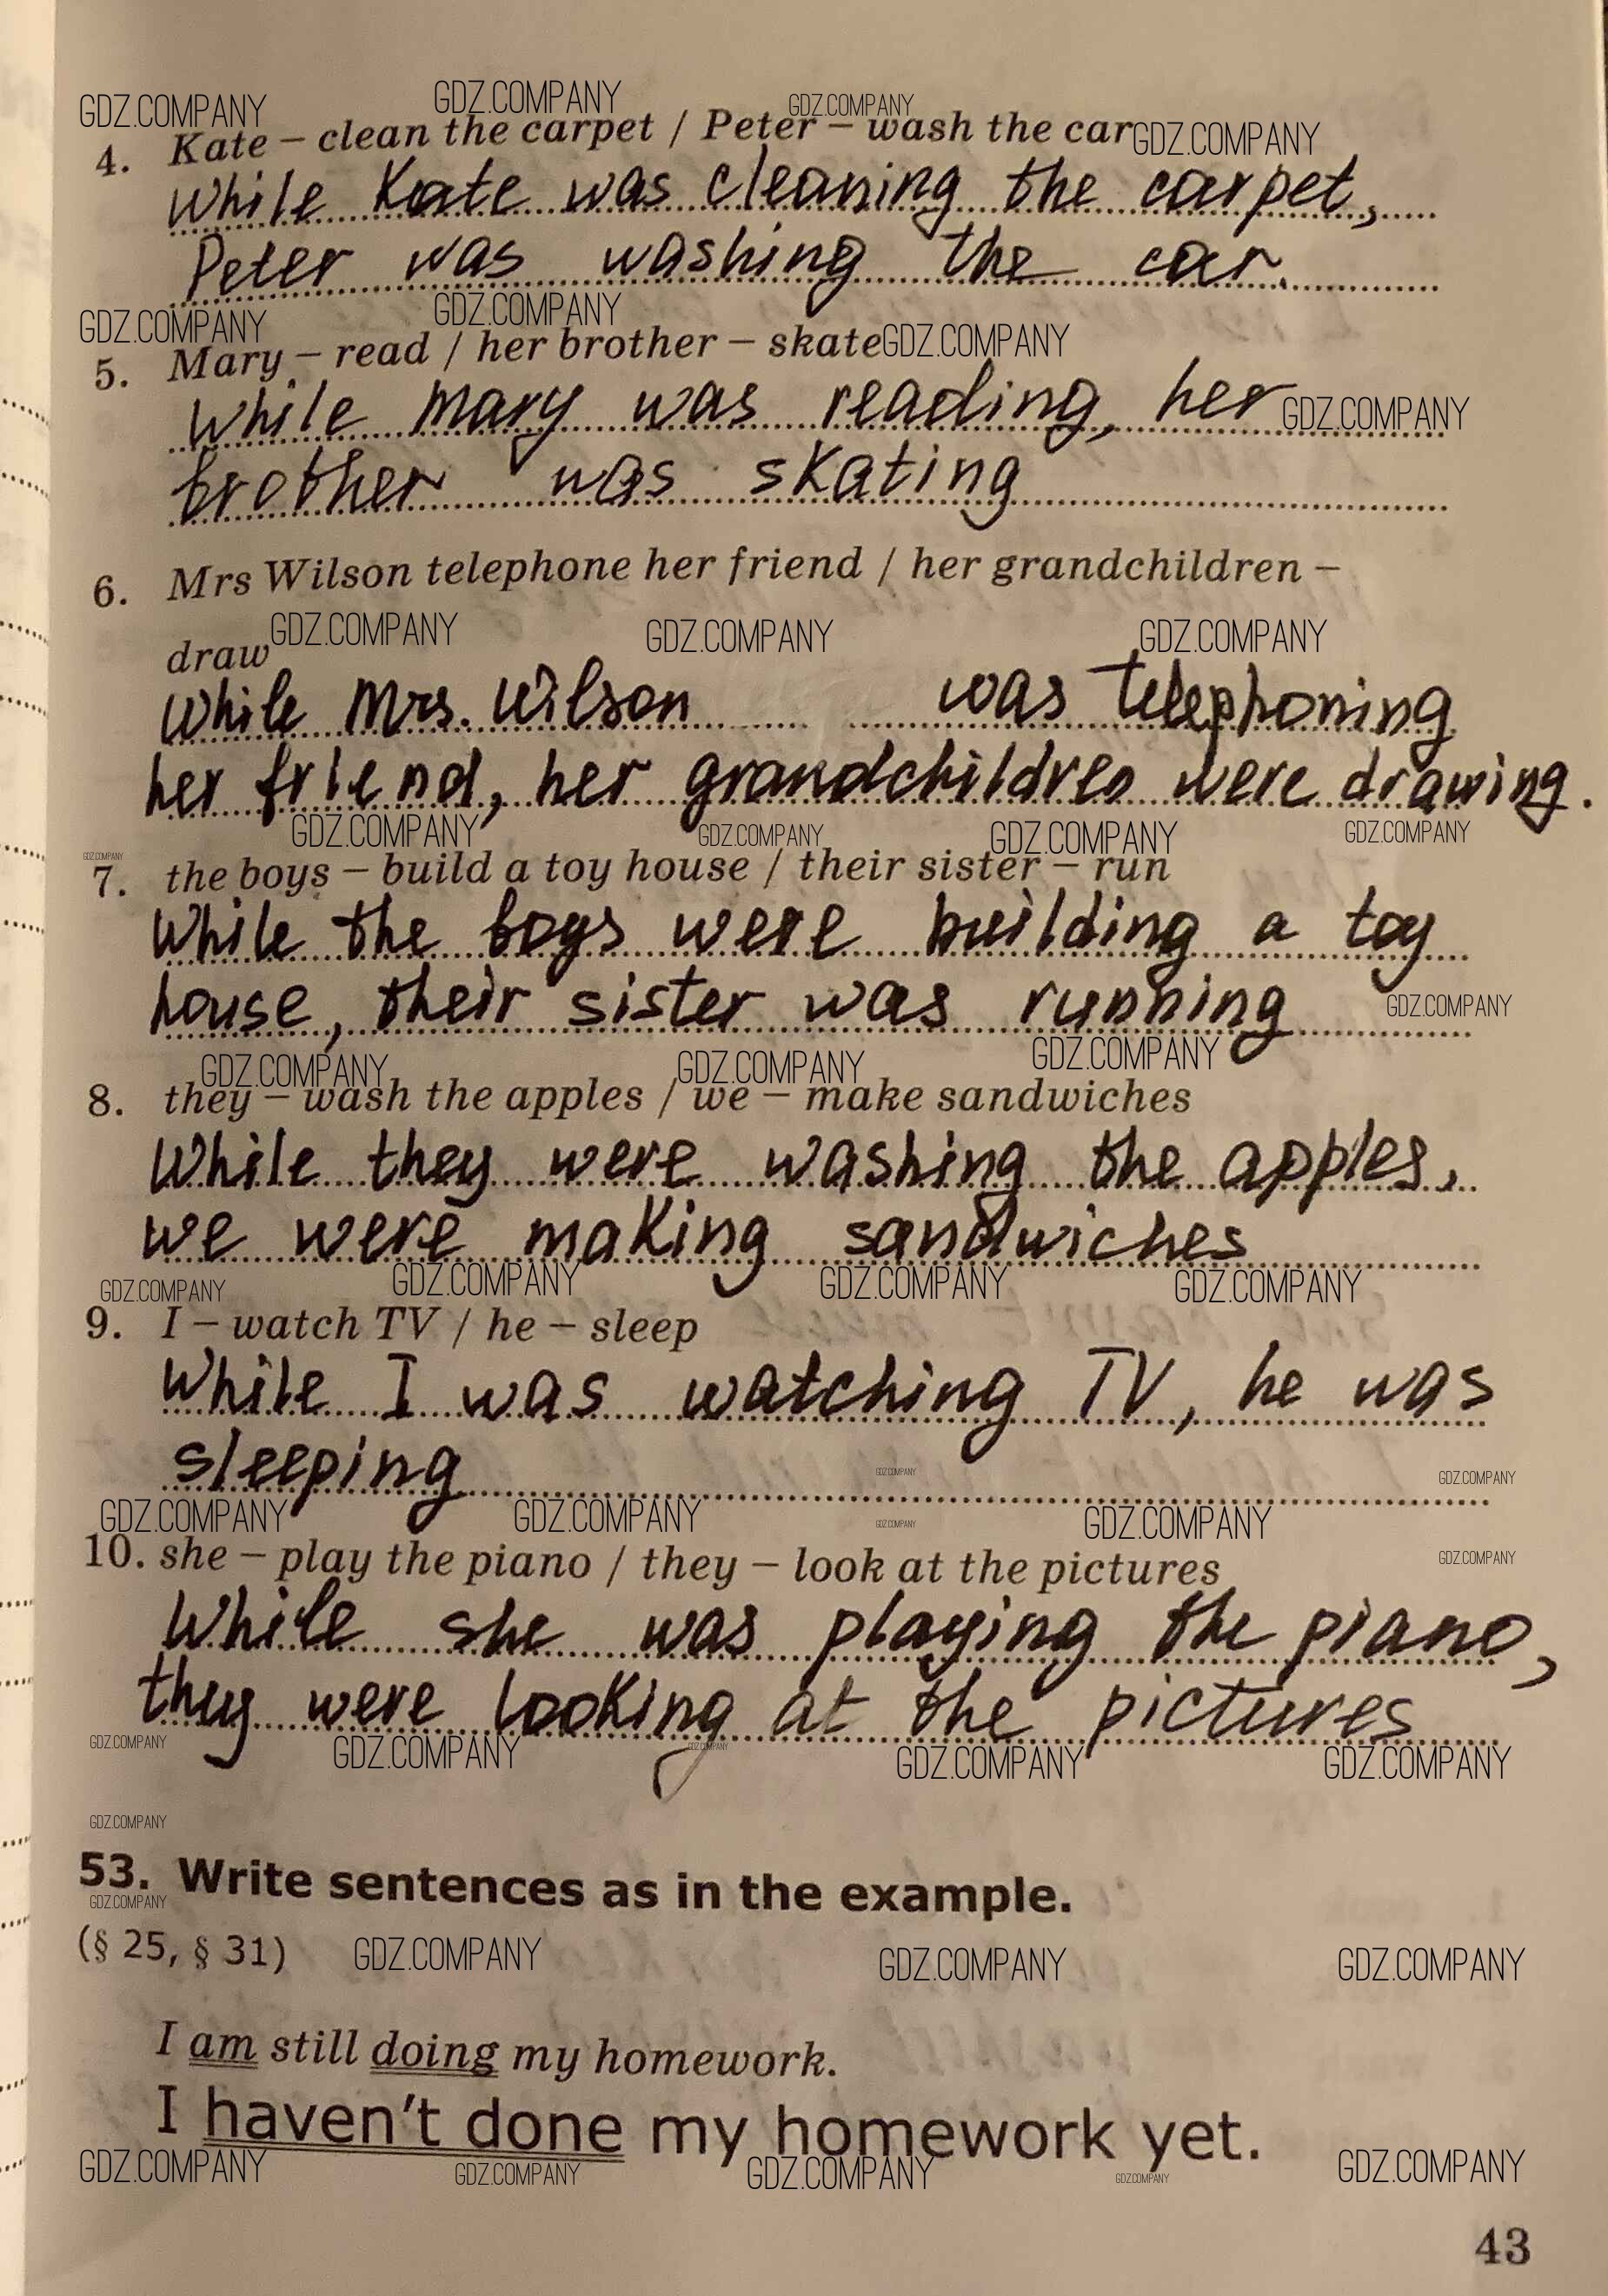 GDZ.COMPANY GDZ.COMPANY GDZ.COMPANY
4. Kate – clean the carpet / Peter – wash the car GDZ.COMPANY
While Kate was cleaning the carpet,
Peter was washing the car.
GDZ.COMPANY GDZ.COMPANY
5. Mary – read / her brother – skate GDZ.COMPANY
While Mary was reading, her GDZ.COMPANY
brother was skating
6. Mrs Wilson telephone her friend / her grandchildren –
draw GDZ.COMPANY GDZ.COMPANY GDZ.COMPANY
While Mrs. Wilson was telephoning
her friend, her grandchildren were drawing.
GDZ.COMPANY GDZ.COMPANY GDZ.COMPANY GDZ.COMPANY
GDZ.COMPANY
7. the boys – build a toy house / their sister – run
While the boys were building a toy
house, their sister was running GDZ.COMPANY
GDZ.COMPANY GDZ.COMPANY GDZ.COMPANY
8. they – wash the apples / we – make sandwiches
While they were washing the apples,
we were making sandwiches
GDZ.COMPANY GDZ.COMPANY GDZ.COMPANY GDZ.COMPANY
9. I – watch TV / he – sleep
While I was watching TV, he was
sleeping GDZ.COMPANY GDZ.COMPANY
GDZ.COMPANY GDZ.COMPANY GDZ.COMPANY GDZ.COMPANY
10. she – play the piano / they – look at the pictures GDZ.COMPANY
While she was playing the piano,
they were looking at the pictures
GDZ.COMPANY GDZ.COMPANY GDZ.COMPANY GDZ.COMPANY GDZ.COMPANY
GDZ.COMPANY
53. Write sentences as in the example.
GDZ.COMPANY
(§ 25, § 31) GDZ.COMPANY GDZ.COMPANY GDZ.COMPANY
I am still doing my homework.
I haven't done my homework yet.
GDZ.COMPANY GDZ.COMPANY GDZ.COMPANY GDZ.COMPANY GDZ.COMPANY
43